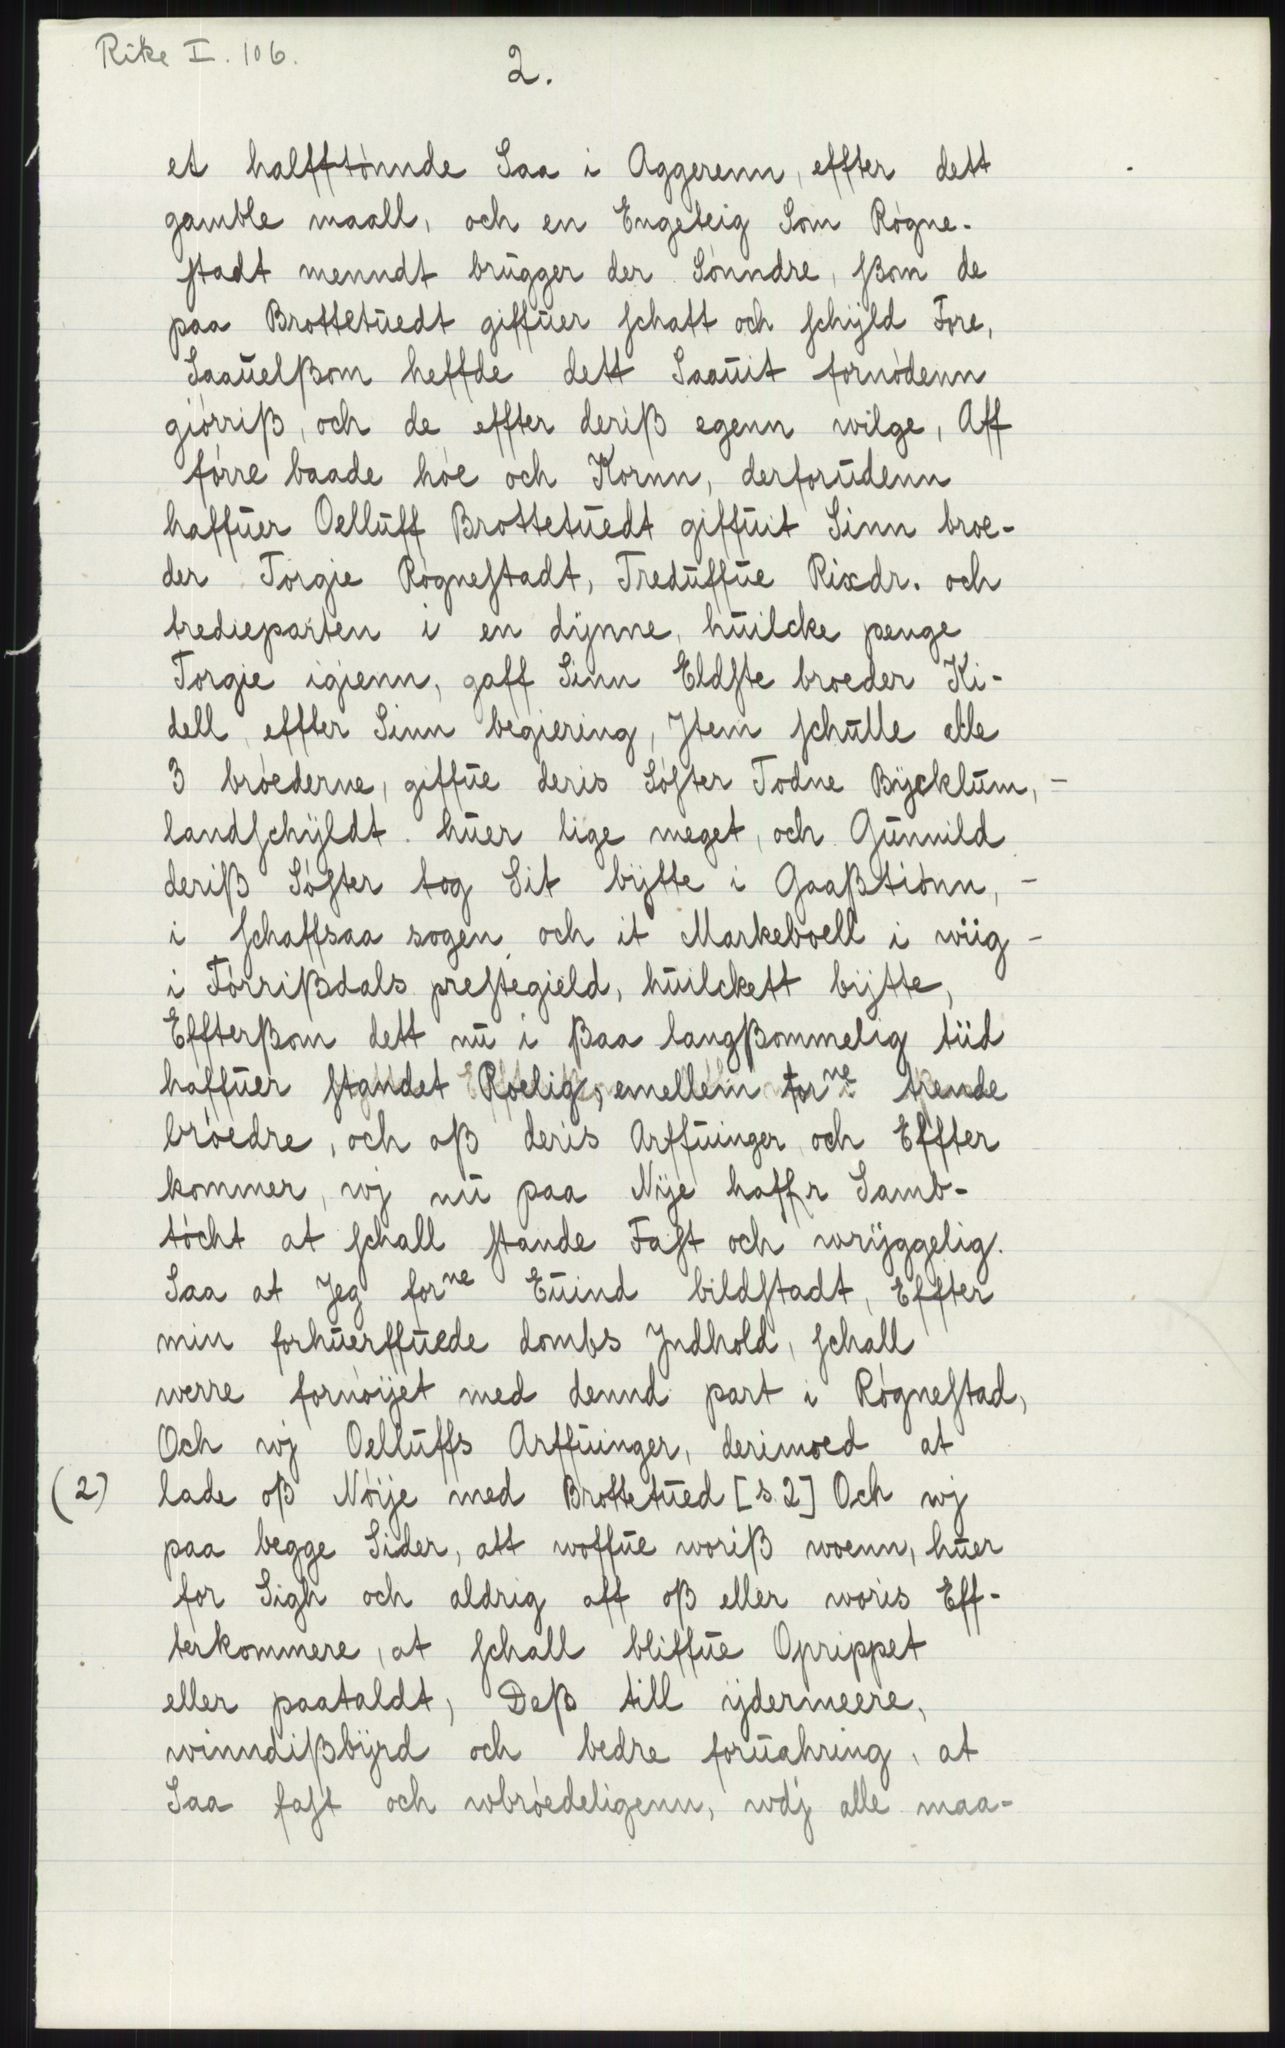 Rike I. 106.
2.
et halfftónnde Saa i Aggerenn, effter dett
gamble maall, och en Engeteig Som Rógne-
stadt menndt brúgger der Sónndre, ßom de
paa Brottetúedt giffúer schatt och schÿld Fore,
Saaúelßom heffde dett Saaúit fornódenn
giórriß, och de effter deriß egenn wilge, Aff
fórre baade hóe och Kornn, derforúdenn
haffúer Oellúff Brottetúedt giffúit Sinn broe-
der Torgie Rógnestadt, Tredúffúe Rixdr. och
tredieparten i en dÿnne, húilcke penge
Torgie igienn, gaff Sinn Eldste broeder Ki-
dell, effter Sinn begiering, Jtem schúlle alle
3 bróederne, giffúe deris Sóster Todne Bÿcklúm, -
landschÿldt húer lige meget, och Gúnnild
deriß Sóster tog Sit bÿtte i Gaaßtiónn, -
i schaffsaa sogen och it Markeboell i wiig -
i Tórrißdals prestegield, húilckett bÿtte,
Effterßom dett nú i ßaa langßommelig tiid
haffúer standet Roelig, emellem forne trende
bróedre, och oß deris Arffúinger och Effter
kommer, wj nú paa Nÿe haffr Samb-
tócht at schall stande Fast och wrÿggelig.
Saa at Jeg forne Eúind bildstadt, Effter
min forhúerffúede dombs Jndhold, schall
werre fornóÿet med dennd part i Rógnestad,
Och wj Oellúffs Arffúinger, derimoed at
(2) lade oß Nóÿe med Brottetúed [s 2] Och wj
paa begge Sider, att woffúe woriß woenn, húer
for Sigh och aldrig aff oß eller woris Eff-
terkommere, at schall bliffúe Oprippet
eller paataldt, Deß till ÿdermeere,
winndißbÿrd och bedre forúahring, at
Saa fast och wbróedeligenn, wdj alle maa-